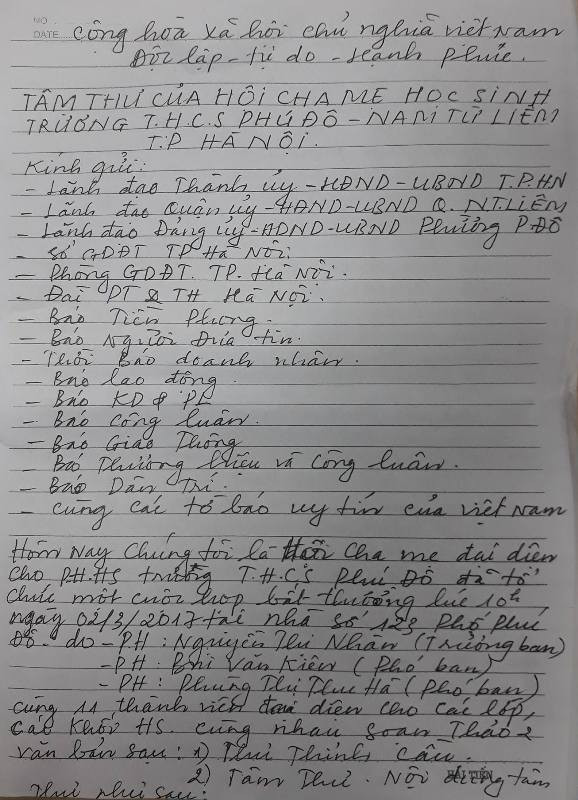 MO
DATE
cộng hoà xã hội chủ nghĩa việt Nam
Độc lập - tự do - Hạnh phúc.
TÂM THƯ CỦA HỘI CHA MẸ HỌC SINH
TRƯỜNG T.H.C.S PHÚ ĐÔ - NAM TỪ LIÊM
T.P HÀ NỘI.
Kính gửi:
- Lãnh đạo Thành ủy - HĐND - UBND T.P.HN
- Lãnh đạo Quận ủy - HĐND - UBND Q. N.T.LIÊM
- Lãnh đạo Đảng ủy - HĐND - UBND Phường P.ĐÔ
- Sở GDĐT TP Hà Nội.
- Phòng GDĐT. TP. Hà Nội.
- Đài PT & TH Hà Nội.
- Báo Tiền Phong.
- Báo Người Đưa tin.
- Thời Báo doanh nhân.
- Báo lao động.
- Báo KD & PL
- Báo Công luận.
- Báo Giao Thông
- Báo Thương hiệu và Công luận.
- Báo Dân Trí.
- cùng các tờ báo uy tín của việt Nam
Hôm nay chúng tôi là Hội cha mẹ đại diện
cho P.H.HS trường T.H.C.S Phú Đô đã tổ
chức một cuộc họp bất thường lúc 10h,
ngày 02/3/2017 tại nhà số 123 phố Phú
Đô - do - PH: Nguyễn Thị Nhàn (Trưởng ban)
- PH: Phí Văn Kiên (Phó ban)
- PH: Phùng Thị Thu Hà (Phó ban)
cùng 11 thành viên đại diện cho các lớp,
các khối HS. cùng nhau soạn Thảo 2
văn bản sau: 1) Thư Thỉnh Cầu.
2) Tâm Thư. Nội dung tâm
Thư như sau:
HẢI TIẾN